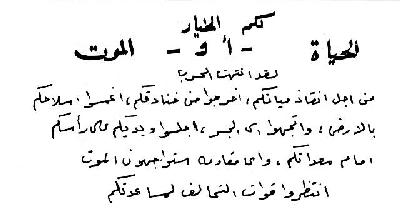 لكم الخيار
الحياة - أو - الموت
لقد انتهت الحرب
من اجل انقاذ حياتكم، اخرجوا من خنادقكم، اغرسوا اسلاحكم
بالارض، واتجهوا الى البحر، اجلسوا ويديكم على رأسكم
امام معداتكم، واي مقاومة ستواجهون الموت
انتظروا قوات التحالف لمساعدتكم